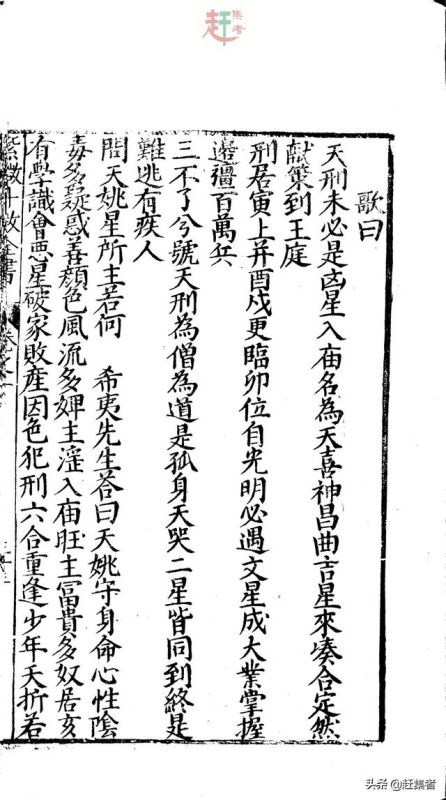 赶集者
歌曰
天刑未必是凶星入庙名為天喜神昌曲吉星來凑合定然
献策到王庭
刑居寅上并酉戌更臨卯位自光明必遇文星成大業掌握
邉疆百萬兵
三不了兮號天刑為僧為道是孤身天哭二星皆同到終是
難逃有疾人
問天姚星所主若何　希夷先生答曰天姚守身命心性陰
毒多疑惑善顔色風流多婢主淫入庙旺主冨貴多奴居亥
有學識會惡星破家敗産因色犯刑六合重逢少年夭折若
紫微斗数全書
头条 @赶集者